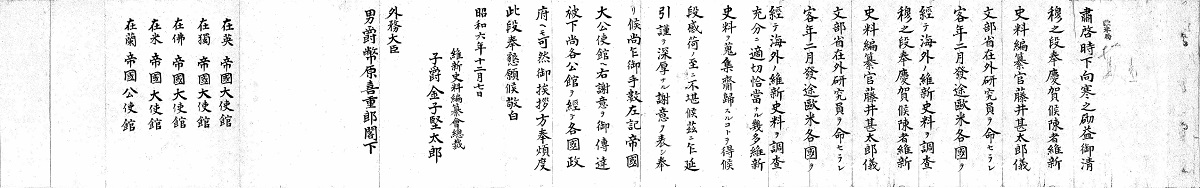 肅啓時下向寒之砌益御清
穆之段奉慶賀候陳者維新
史料編纂官藤井甚太郎儀
文部省在外研究員ヲ命セラレ
客年二月發途歐米各國ヲ
經テ海外ノ維新史料ヲ調査
穆之段奉慶賀候陳者維新
史料編纂官藤井甚太郎儀
文部省在外研究員ヲ命セラレ
客年二月發途歐米各國ヲ
經テ海外ノ維新史料ヲ調査
充分ニ適切恰當ナル幾多維新
史料ヲ蒐集齎歸スルコトヲ得候
段感荷ノ至ニ不堪候茲ニ乍延
引謹テ深厚ナル謝意ヲ表シ奉
リ候尚乍御手數左記帝國
大公使館ヘ右謝意ヲ御傳達
被下尚各公館ヲ經テ各國政
府ヘモ可然御挨拶方奉煩度
此段奉懇願候敬白
昭和六年十二月七日
維新史料編纂會總裁
子爵金子堅太郎
外務大臣
男爵幣原喜重郎閣下
在英帝國大使館
在獨帝國大使館
在佛帝國大使館
在米帝國大使館
在蘭帝國公使館